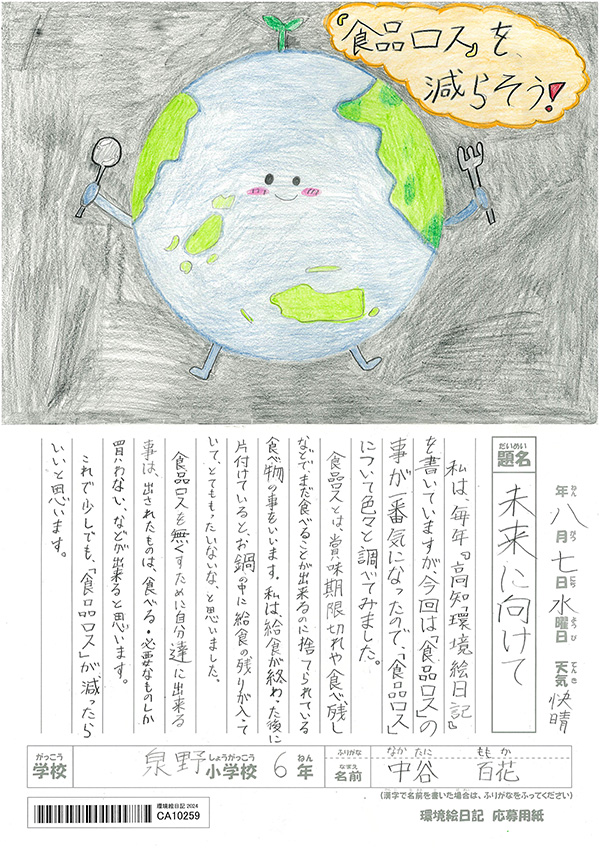 『食品ロス』を、
減らそう!
年 八月 七日 水曜日 天気 快晴
ねん がつ にち ようび てんき
だいめい
題名 未来に向けて
私は、毎年『高知環境絵日記』
を書いていますが、今回は「食品ロス」の
事が一番気になったので、「食品ロス」
について色々と調べてみました。
食品ロスとは、賞味期限切れや食べ残し
などで、まだ食べることが出来るのに捨てられている
食べ物の事をいいます。私は、給食が終わった後に
片付けていると、お鍋の中に給食の残りが入って
いて、とてももったいないな、と思いました。
食品ロスを無くすために自分達に出来る
事は、出されたものは、食べる・必要なものしか
買わない、などが出来ると思います。
これで少しでも、「食品ロス」が、減ったら
いいと思います。
がっこう しょうがっこう ねん
学校 泉野 小学校 6年
ふりがな なかたに ももか
なまえ
名前 中谷 百花
(漢字で名前を書いた場合は、ふりがなをふってください)
環境絵日記 2024
CA10259
環境絵日記 応募用紙